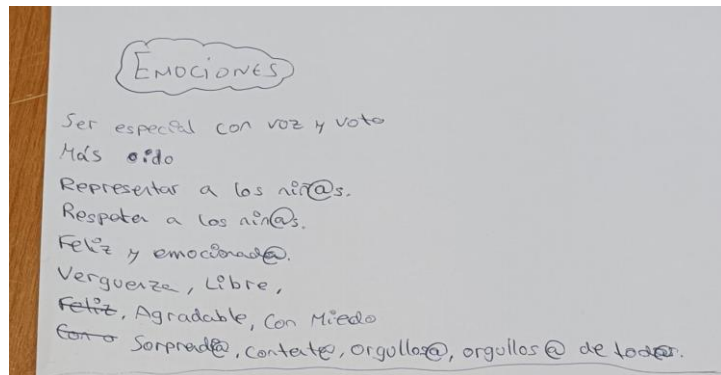 EMOCIONES
Ser especial con voz y voto
Más oído
Representar a los niñ@s.
Respetar a los niñ@s.
Feliz y emocionad@.
Verguenza, Libre,
Feliz, Agradable, Con Miedo
Con o Sorprend@, content@, orgullos@, orgullos@ de tod@s.